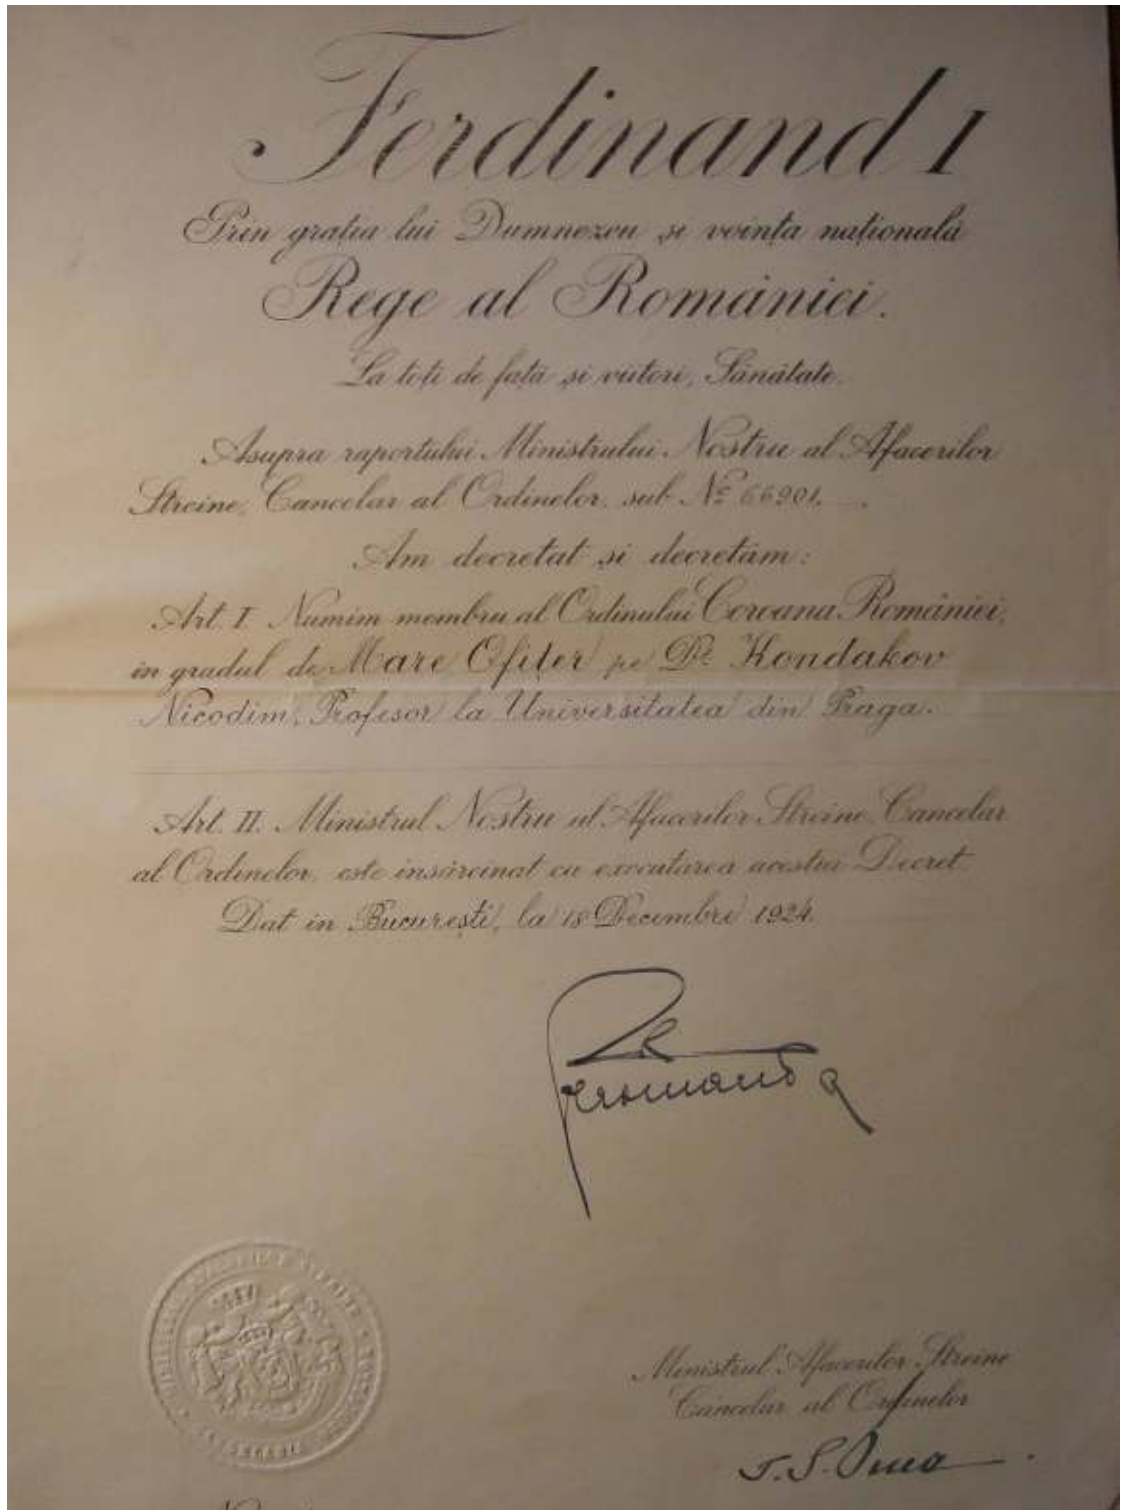 Ferdinand I
Prin grația lui Dumnezeu și voința națională
Rege al României.
La toți de față și viitori, Sănătate.
Asupra raportului Ministrului Nostru al Afacerilor
Streine, Cancelar al Ordinelor, sub No 66901.
Am decretat și decretăm:
Art. I Numim membru al Ordinului Coroana României,
in gradul de Mare Ofițer pe Dr. Kondakov
Nicodim, Profesor la Universitatea din Praga.
Art. II. Ministrul Nostru al Afacerilor Streine, Cancelar
al Ordinelor, este însărcinat cu executarea acestui Decret.
Dat în București, la 18 Decembrie 1924.
Ministrul Afacerilor Streine
Cancelar al Ordinelor